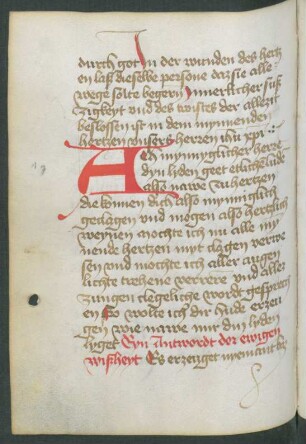 durch got In der wunden des hertz
en last dieselbe persone daz sie alle
wege solte begern Innerlicher suß
zigkeyt vnd des troistes der allezit
beslossen ist in dem mynnenden
hertzen vnsers herren ihu xpi
Ach mynnyglicher herre
dyn lyden geet etliche lude
also nawe zu hertzen
die konnen dich also mynniglich
geclagen vnd mogen also hertzlich
weynen mochte ich nu alle my
nende hertzen myt clagen vertre
ten vnd mochte ich aller augen
lichte trehene verrere vnd alles
zungen clegeliche wordt gesprech
en so wolte ich dir hude erzeu
gen wie nawe mir din lyden
lyget Eyn Antwordt der ewigen
wißheyt Es erzeuget nyemant baz